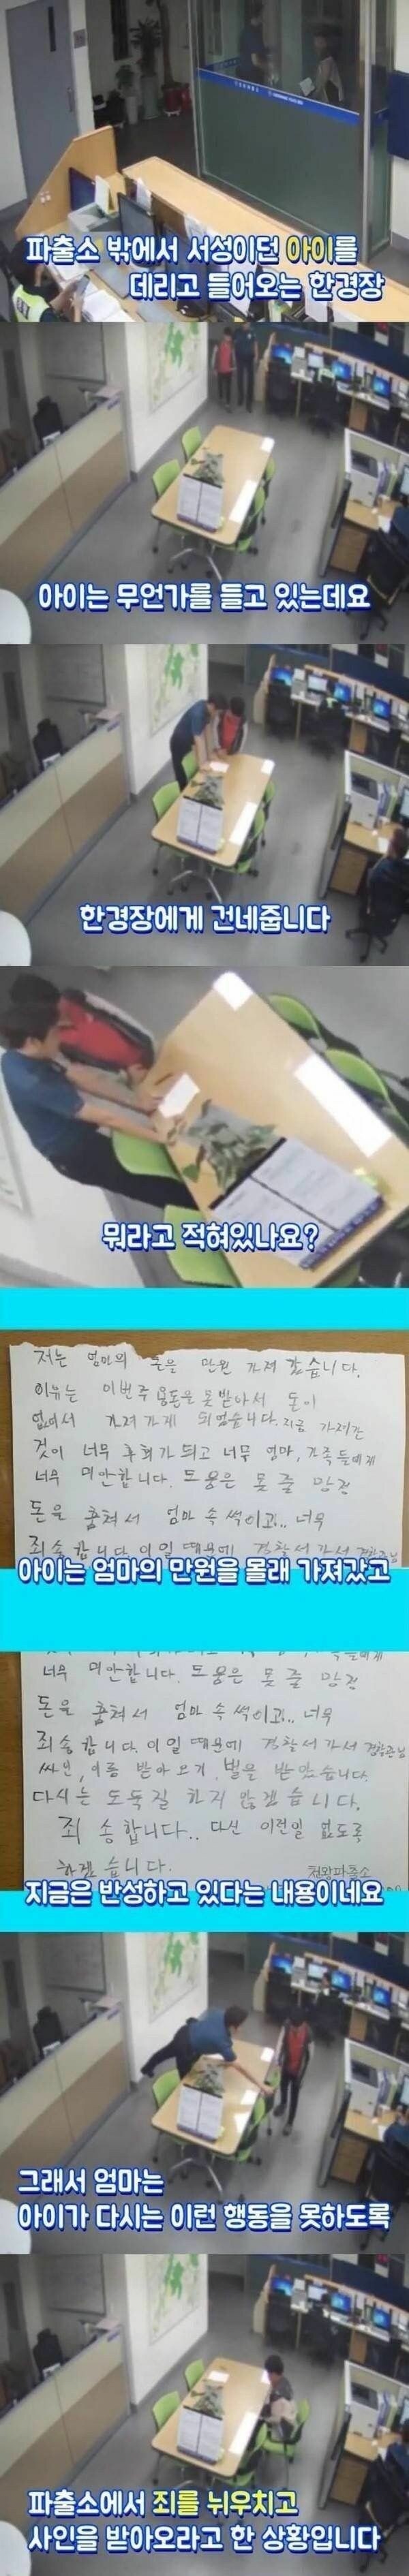 파출소 밖에서 서성이던 아이를
데리고 들어오는 한경장
아이는 무언가를 들고 있는데요
한경장에게 건네줍니다
뭐라고 적혀있나요?
저는 엄마의 돈을 만원 가져 갔습니다.
이유는 이번주 용돈을 못받아서 돈이
없어서 가져가게 되었습니다. 지금 가져간
것이 너무 후회가 되고 너무 엄마, 가족들에게
너무 미안합니다. 도움은 못 줄 망정
돈을 훔쳐서 엄마 속 썩이고... 너무
죄송합니다. 이일 때문에 경찰서 가서 경찰관님
아이는 엄마의 만원을 몰래 가져갔고
너무 미안합니다. 도움은 못 줄 망정
돈을 훔쳐서 엄마 속 썩이고... 너무
죄송합니다. 이일 때문에 경찰서 가서 경찰관님
싸인, 이름 받아오기 벌을 받았습니다.
다시는 도둑질 하지 않겠습니다.
죄송합니다.. 다신 이런일 없도록
하겠습니다.
천왕파출소
지금은 반성하고 있다는 내용이네요
그래서 엄마는
아이가 다시는 이런 행동을 못하도록
파출소에서 죄를 뉘우치고
사인을 받아오라고 한 상황입니다